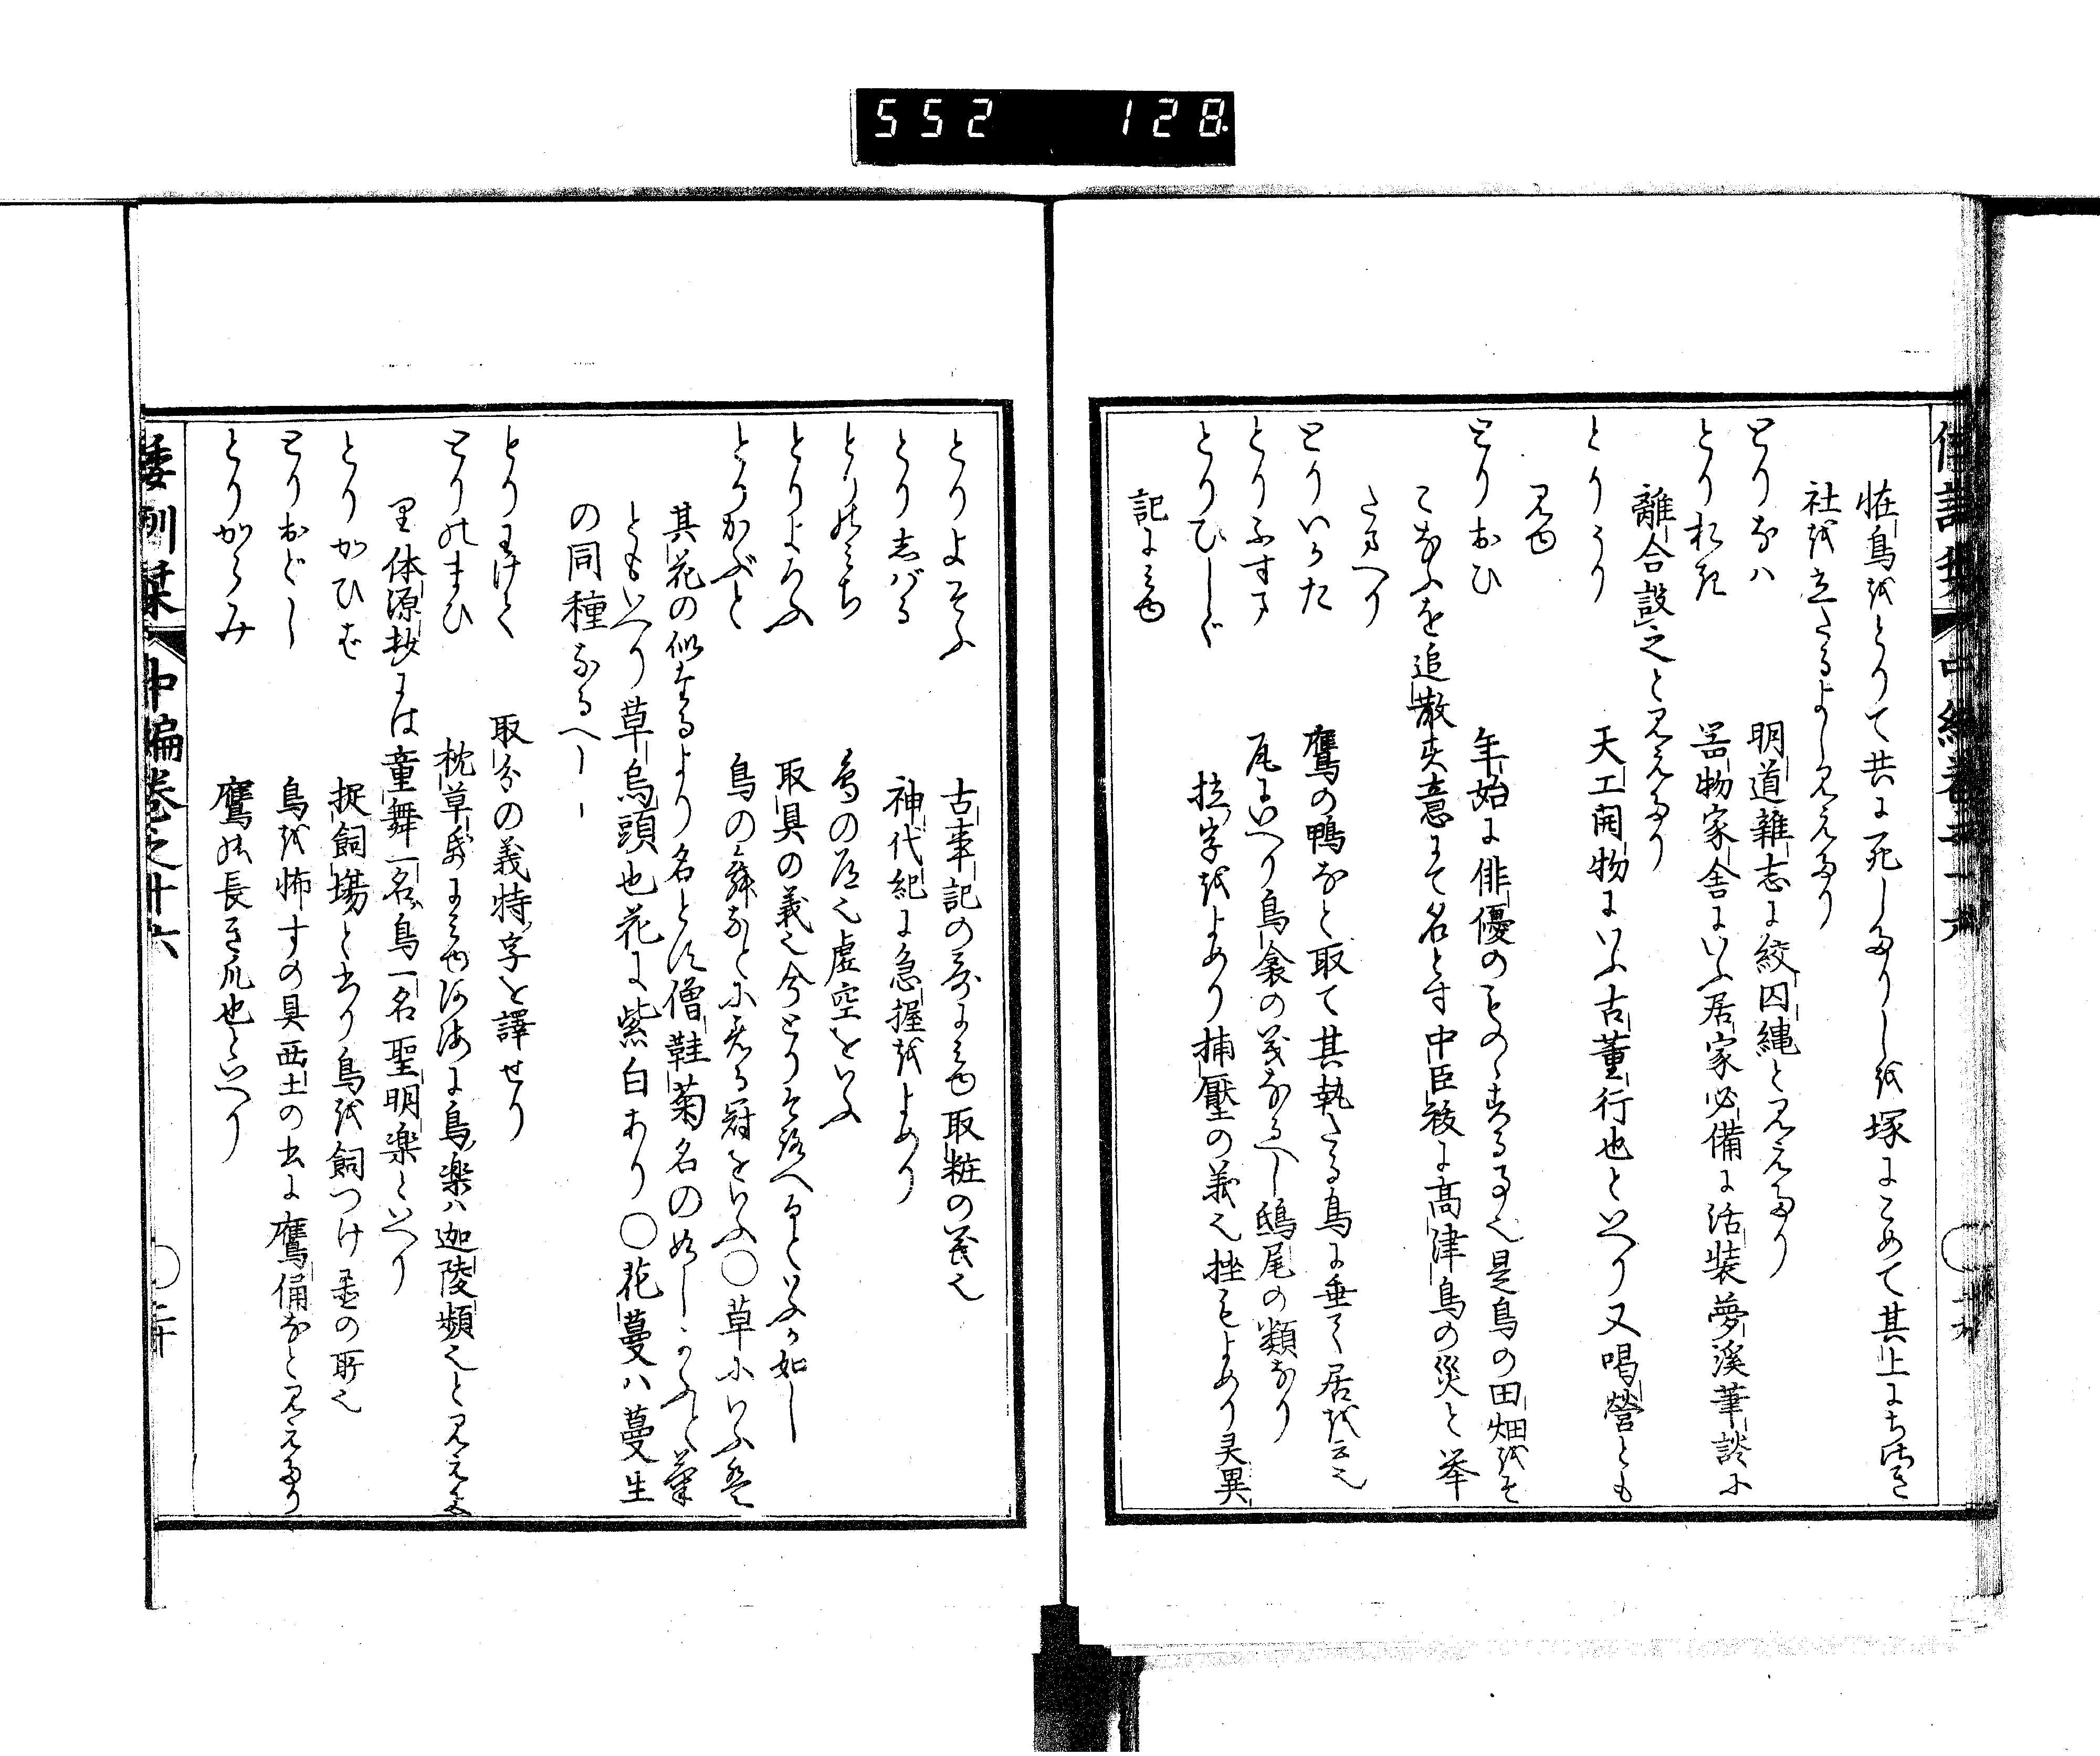 552 128
恠鳥をとりて共に死しありしを塚にこめて其上にちひさき
社を立たるよし見えたり
とりなは 明道雑志に絞囚縄と見えたり
とりおき 器物家舎にいふ居家必備に活装夢溪筆談に
離合設之と見えたり
とりうり 天工開物にいふ古董行也といへり又喝營とも
見ゆ
とりおひ 年始に俳優のものゝする事也是鳥の田畑をそ
こなふを追散す意にて名とす中臣祓に高津鳥の災と挙
たまへり
とりいかた 鷹の鴨なと取て其執たる鳥に垂て居を云也
とりふすま 瓦にいへり鳥衾の義なるへし鴟尾の類なり
とりひしぐ 拉字をよめり捕壓の義也挫もよめり灵異
記に見ゆ
とりよそふ 古事記の哥に見ゆ取粧の義也
とりしばる 神代紀に急握をよめり
とりのみち 鳥の道也虚空をいふ
とりよろふ 取具の義也今とりそろへなといふか如し
とりかぶと 鳥の舞なとに着る冠をいふ〇草にいふも
其花の似たるより名とす僧鞋菊名の如しかふと菊
ともいへり草烏頭也花に紫白あり〇花蔓ハ蔓生
の同種なるへし
とりわけて 取分の義特字を譯せり
とりのまひ 枕草帋に見ゆ河海に鳥楽ハ迦陵頻也と見えた
り体源抄には童舞一名鳥一名聖明楽といへり
とりかひば 捉飼場と書り鳥を飼つけ置の所也
とりおどし 鳥を怖すの具西土の書に鷹俑なと見えたり
とりがらみ 鷹の長き爪也といへり
倭訓栞 中編巻之十六 〇二十